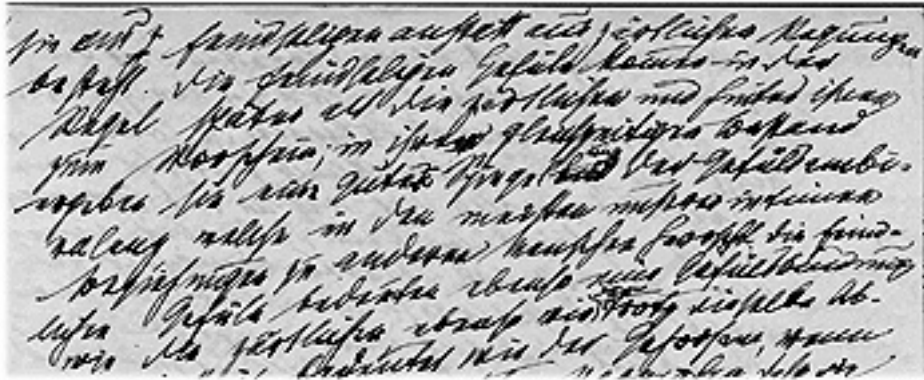 sie aus feindseligen anstatt aus zärtlichen Regungen
besteht. Die feindseligen Gefühle kommen in der
Regel später als die zärtlichen und hinter ihnen
zum Vorschein; in ihrem gleichzeitigen Bestand
ergeben sie eine gute Spiegelung der Gefühlsambi-
valenz welche in den meisten unserer intimen
Beziehungen zu anderen Menschen herrscht. Die feind-
lichen Gefühle bedeuten ebenso eine Gefühlsbindung
wie die zärtlichen ebenso wie der Trotz dieselbe Ab-
bedeutet wie der Gehorsam, wenn